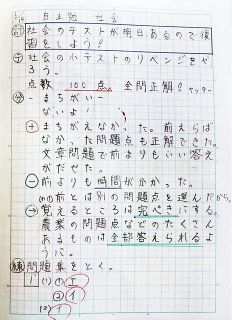 自主勉 社会
社会のテストが明日あるので復
習をしよう?
社会の小テストのリベンジをや
ろう。
点数 100点 全問正解?ヤッター
まちがい
ないよ!
+ まちがえなかった。前えらば
なかった問題点も正解できた。
文章問題で前よりもいい答え
がだせた。
- 前よりも時間がかかった。
(m)前とは別の問題点を選んだから。
→ 覚えるところは完ぺきにする。
農業の問題点などのたくさん
あるものは全部答えられるよ
うに。
練 問題集をとく。
1 (1) ① エ
② イ
(2) イ